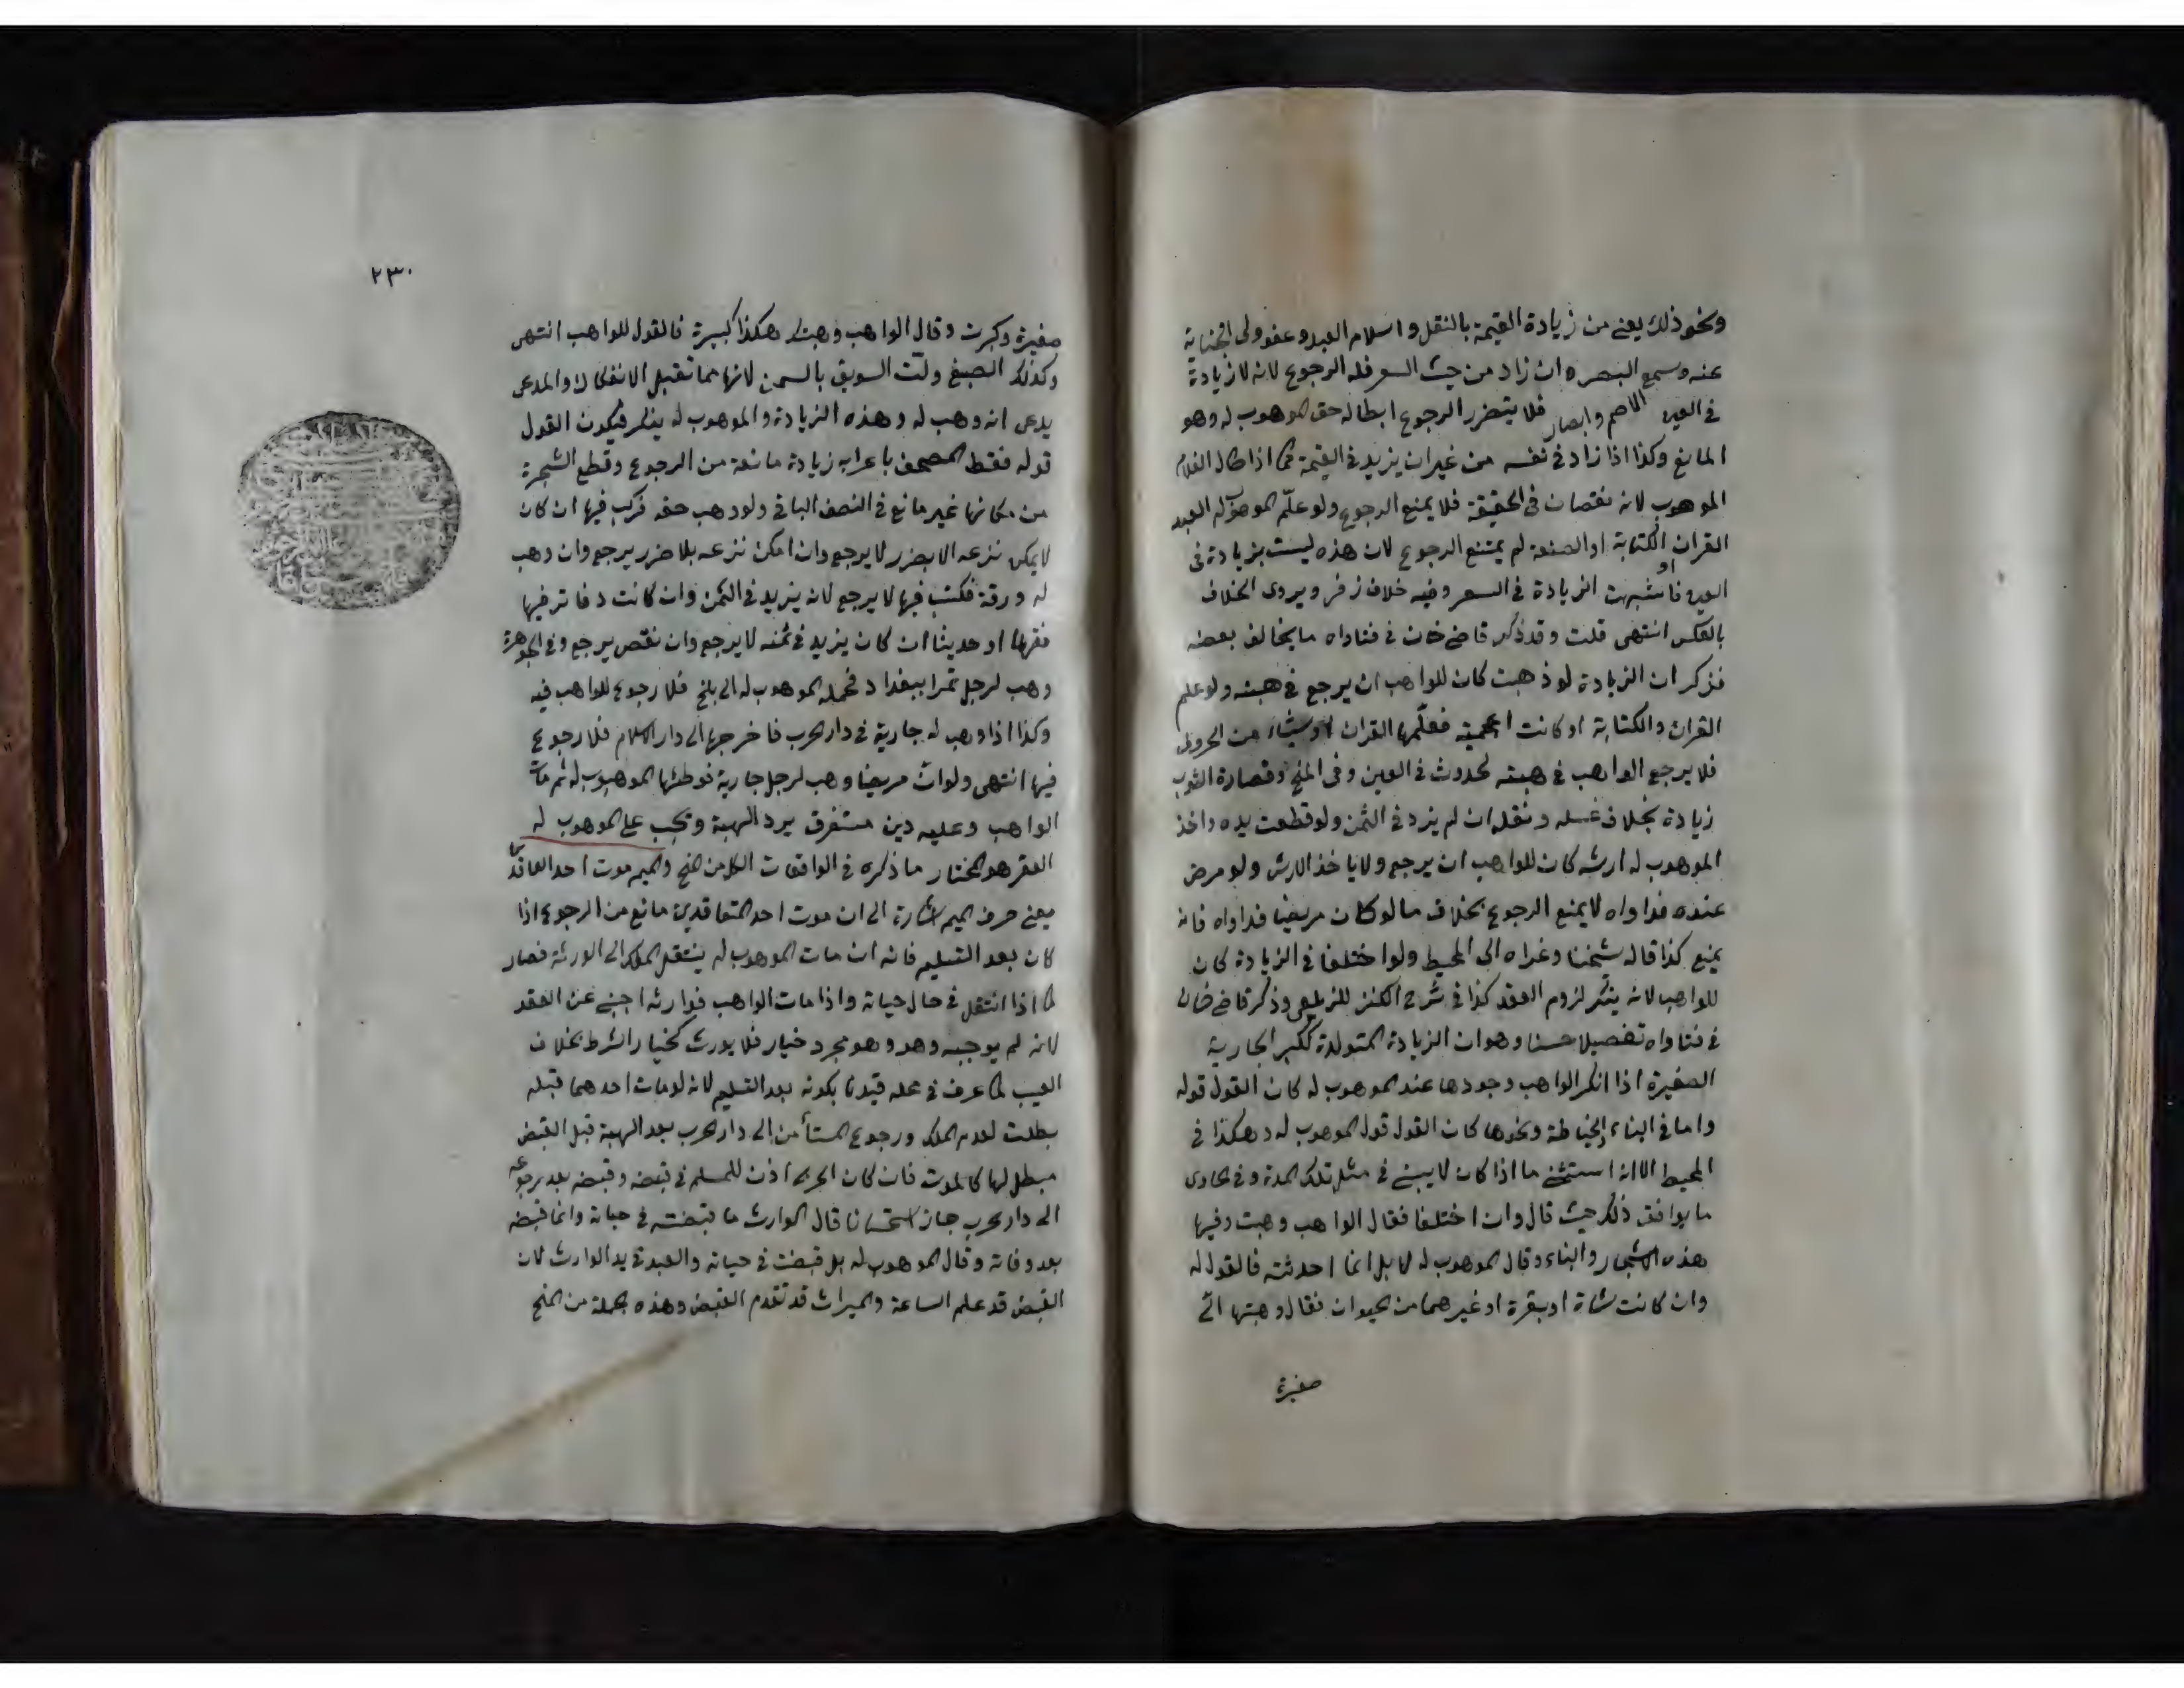 ونحو ذلك يعني من زيادة القيمة بالنقل واسلام العبد وعفو ولي الجناية
عنه وسمع البصره ان زاد من حيث السعر فله الرجوع لانه لا زيادة
في العين الاصم وابصار فلا يتضرر الرجوع ابطاله حق الموهوب له وهو
المانع وكذا اذا زاد في نفسه من غير ان يزيد في القيمة كما اذا طال الغلام
الموهوب لانه نقصان في الحقيقة فلا يمنع الرجوع ولو علّم الموهوب له العبد
القران او الكتابة او الصنعة لم يمتنع الرجوع لان هذه ليست بزيادة في
العين فاشبهت الزيادة في السعر وفيه خلاف زفر ويروى الخلاف
بالعكس انتهى قلت وقد ذكر قاضي خان في فتاواه ما يخالف بعضه
فذكر ان الزيادة لو ذهبت كان للواهب ان يرجع في هبته ولو علم
القران والكتابة او كانت اعجمية فعلّمها القران او شيئا من الحروف
فلا يرجع الواهب في هبته لحدوث في العين وفي المنح وقصارة الثوب
زيادة بخلاف غسله ونقله ان لم يزد في الثمن ولو قطعت يده واخذ
الموهوب له ارشه كان للواهب ان يرجع ولا ياخذ الارش ولو مرض
عنده فداواه لا يمنع الرجوع بخلاف ما لو كان مريضا فداواه فانه
يمنع كذا قاله شيخنا وعزاه الى المحيط ولو اختلفا في الزيادة كان
للواهب لانه ينكر لزوم العقد كذا في شرح الكنز للزيلعي وذكر قاضي خان
في فتاواه تفصيلا حسنا وهو ان الزيادة المتولدة ككبر الجارية
الصغيرة اذا انكر الواهب وجودها عند الموهوب له كان القول قوله
واما في البناء والخياطة ونحوها كان القول قول الموهوب له وهكذا في
المحيط الا انه استثنى ما اذا كان لا يبنى في مثل تلك المدة وفي الحاوي
ما يوافق ذلك حيث قال وان اختلفا فقال الواهب وهبت وفيها
هذه الاشجار والبناء وقال الموهوب له لا بل انا احدثته فالقول له
وان كانت شاة او بقرة او غيرهما من الحيوان فقال وهبتها الي
صغيرة
٢٣٠
صغيرة وكبرت وقال الواهب وهبتك هكذا كبيرة فالقول للواهب انتهى
وكذلك الصبغ ولتّ السويق بالسمن لانها مما تقبل الانفكاك والمدعي
يدعي انه وهب له وهذه الزيادة والموهوب له ينكر فيكون القول
قوله فنقط المصحف باعرابه زيادة مانعة من الرجوع وقطع الشجرة
من مكانها غير مانع في النصف الباقي ولو وهب حقه فركب فيها ان كان
لا يمكن نزعه الا بضرر لا يرجع وان امكن نزعه بلا ضرر يرجع وان وهب
له ورقة فكتب فيها لا يرجع لانه يزيد في الثمن وان كانت دفاتر فيها
فقها او حديثا ان كان يزيد في ثمنه لا يرجع وان نقص يرجع وفي الجوهرة
وهب لرجل تمرا ببغداد فحمله الموهوب له الى بلخ فلا رجوع للواهب فيه
وكذا اذا وهب له جارية في دار الحرب فاخرجها الى دار الاسلام فلا رجوع
فيها انتهى ولو ان مريضا وهب لرجل جارية فوطئها الموهوب له ثم مات
الواهب وعليه دين مستغرق يرد الهبة ويجب على الموهوب له
العقر هو المختار ما ذكره في الواقعات الكل من المنح والميم موت احد العاقدين
يعني حرف الميم اشارة الى ان موت احد المتعاقدين مانع من الرجوع اذا
كان بعد التسليم فانه ان مات الموهوب له ينتقل الملك الى الورثة فصار
كما اذا انتقل في حال حياته واذا مات الواهب فوارثه اجنبي عن العقد
لانه لم يوجبه وهو مجرد خيار فلا يورث كخيار الشرط بخلاف
العيب كما عرف في محله قيدنا بكونه بعد التسليم لانه لو مات احدهما قبله
بطلت لعدم الملك ورجوع المستأمن الى دار الحرب بعد الهبة قبل القبض
مبطل لها كالموت فان كان الحربي اذن للمسلم في قبضه وقبضه بعد رجوعه
الى دار الحرب جاز استحسانا قال الوارث ما قبضته في حياته وانما قبضه
بعد وفاته وقال الموهوب له بل قبضت في حياته والعبد في يد الوارث لان
القبض قد علم الساعة والميراث قد تقدم القبض وهذه الجملة من المنح